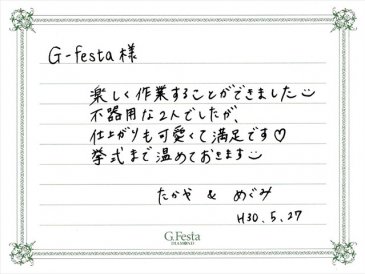 G-festa様
楽しく作業することができました
不器用な2人でしたが、
仕上がりも可愛くて満足です♡
挙式まで温めておきます
たかや & めぐみ
H30.5.27
G.Festa
DIAMOND